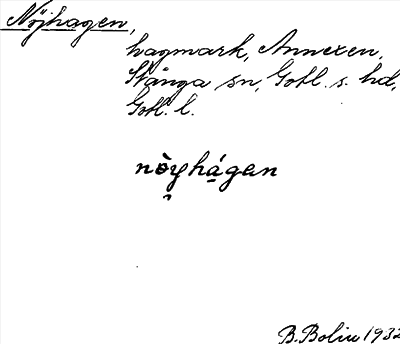 Nöjhagen,
hagmark, Annexen,
Stånga sn, Gotl. s. hd,
Gotl. l.
nòyhágan
B. Bolin 1932